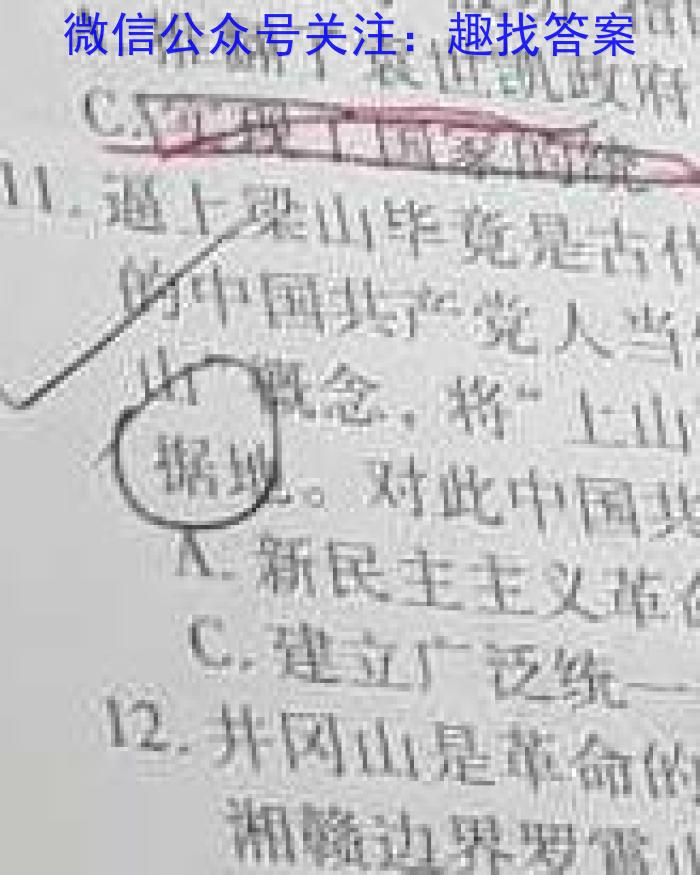 微信公众号关注：趣找答案
了袁世凯政府
C.实现了国家的统
11.逼上梁山毕竟是古代
的中国共产党人当
山”概念，将“上山
据地。对此中国共
A.新民主主义革命
C.建立广泛统一
12.井冈山是革命的
湘赣边界罗霄山